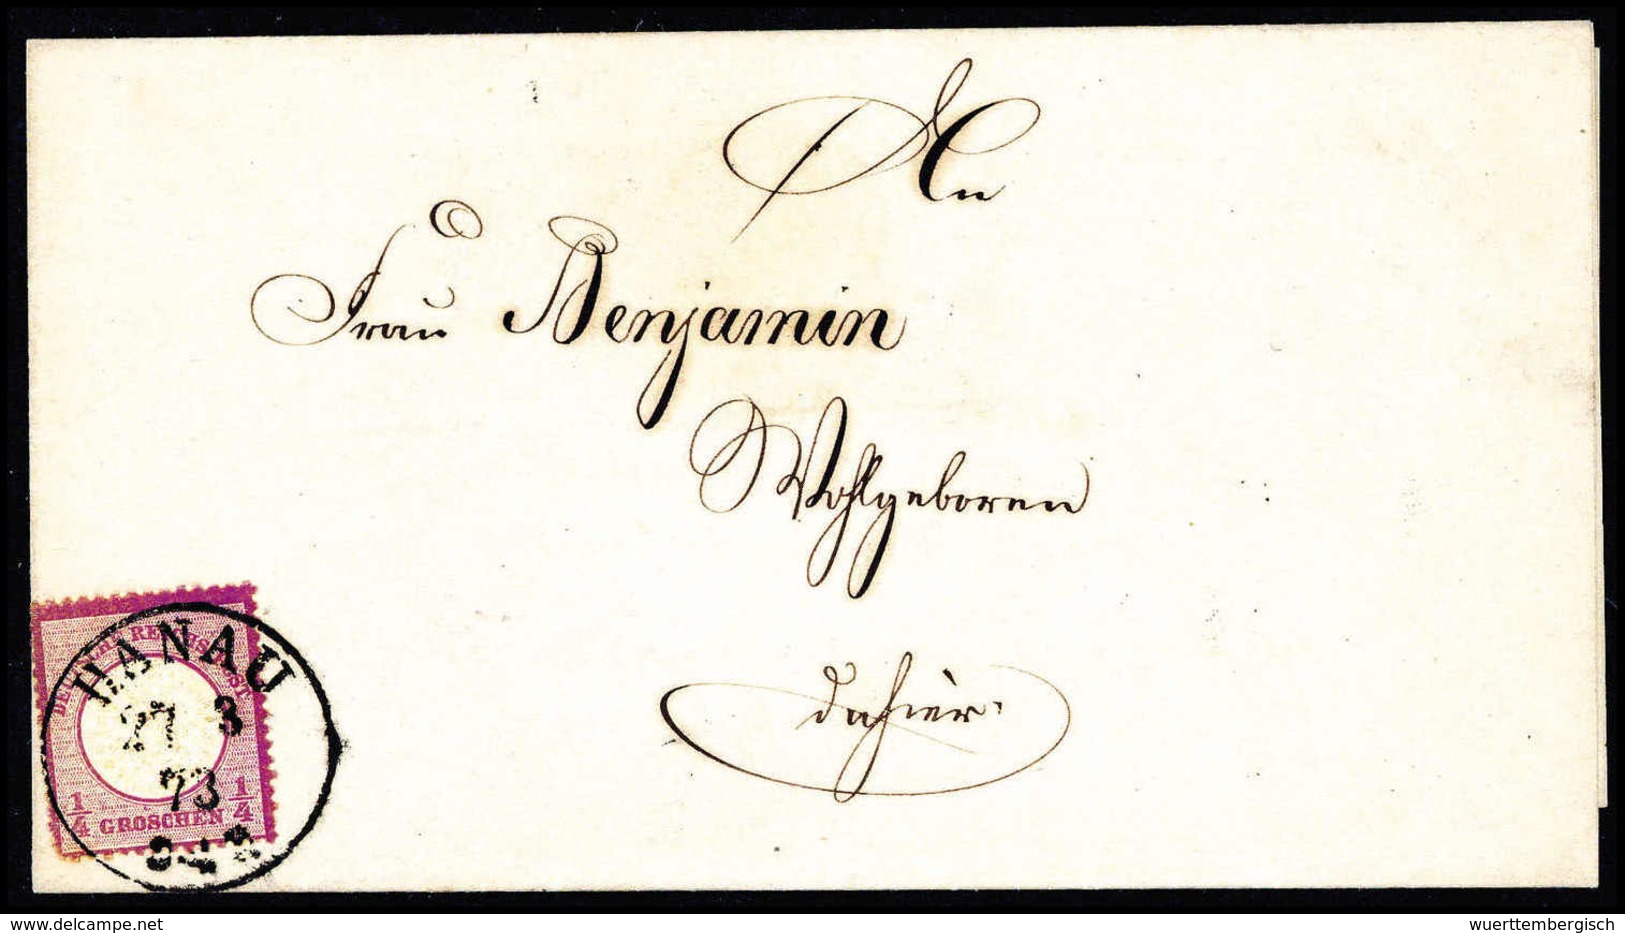 An
Frau Benjamin
Wohlgeboren
dahier.
DEUTSCHE REICHSPOST
1/4 GROSCHEN 1/4
HANAU
27 3
73
delcampe.net
wuerttembergisch